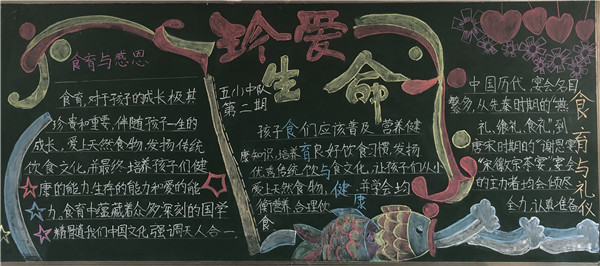 珍爱
生命
食育与感恩
食育,对于孩子的成长极其
珍贵和重要,伴随孩子一生的
成长,爱上天然食物,发扬传统
饮食文化,并最终培养孩子们健
康的能力生存的能力和爱的能
力。食育中蕴藏着众多深刻的国学
精髓随我们中国文化强调天人合一
五小中队
第二期
孩子食们应该普及营养健
康知识,培养育良好饮食习惯,发扬
优秀传统饮与食文化,让孩子们从小
爱上天然食物,健并学会均
衡营养,合理饮康
食。
中国历代,宴会名目
繁多,从先秦时期的"燕
礼、飨礼、食礼"到
唐宋时期的"谢恩宴"
"宋徽宗茶宴",宴会
的主办者均会倾尽
全力,认真准备
食育与礼仪